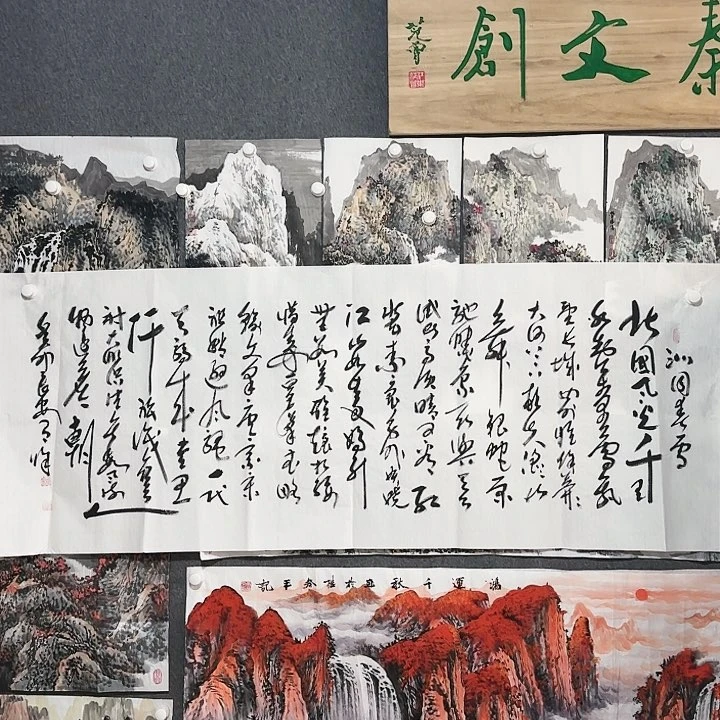 秦文創
范曾
沁园春雪
北國风光千里
冰封万里雪飘
望长城内外惟余莽莽
大河上下顿失滔滔山
舞银蛇原
驰蜡象欲与天
公试比高须晴日看红
装素裹分外妖娆
江山如此多娇引
无数英雄竞折腰
惜秦皇汉武略
输文采唐宗宋
祖稍逊风骚一代
天骄成吉思
汗只识弯弓
射大雕俱往矣数风流
人物还看今朝
癸卯
鴻運千秋